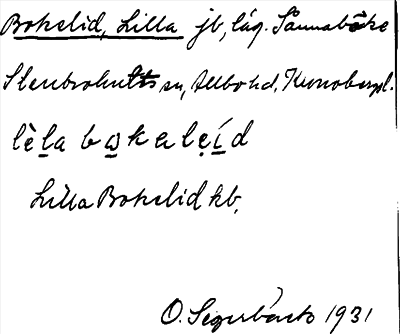 Bokelid, Lilla jb, läg. Sännaböke
Stenbrohults sn, Allbo hd, Kronobergs l.
lèla bωkaleíd
Lilla Bokelid kb.
O. Segerbäck 1931